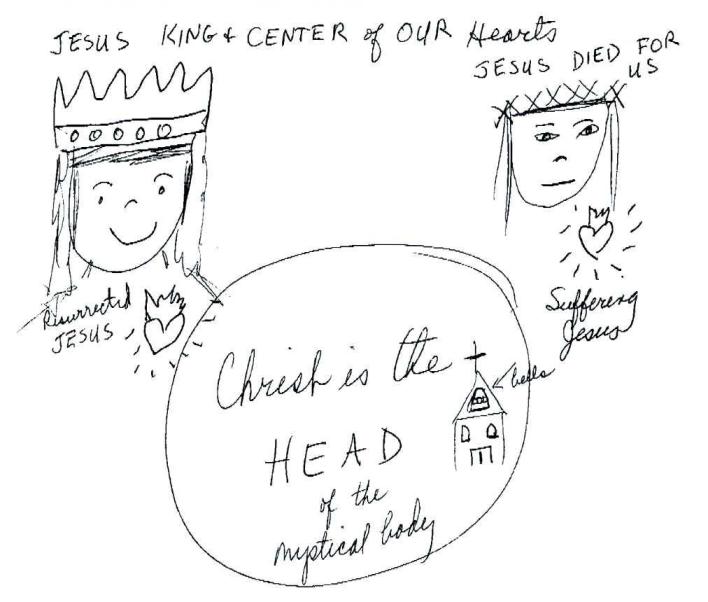 JESUS KING & CENTER of OUR Hearts
JESUS DIED FOR
US
Resurrected
JESUS
Suffering
Jesus
Christ is the
bells
HEAD
of the
mystical body